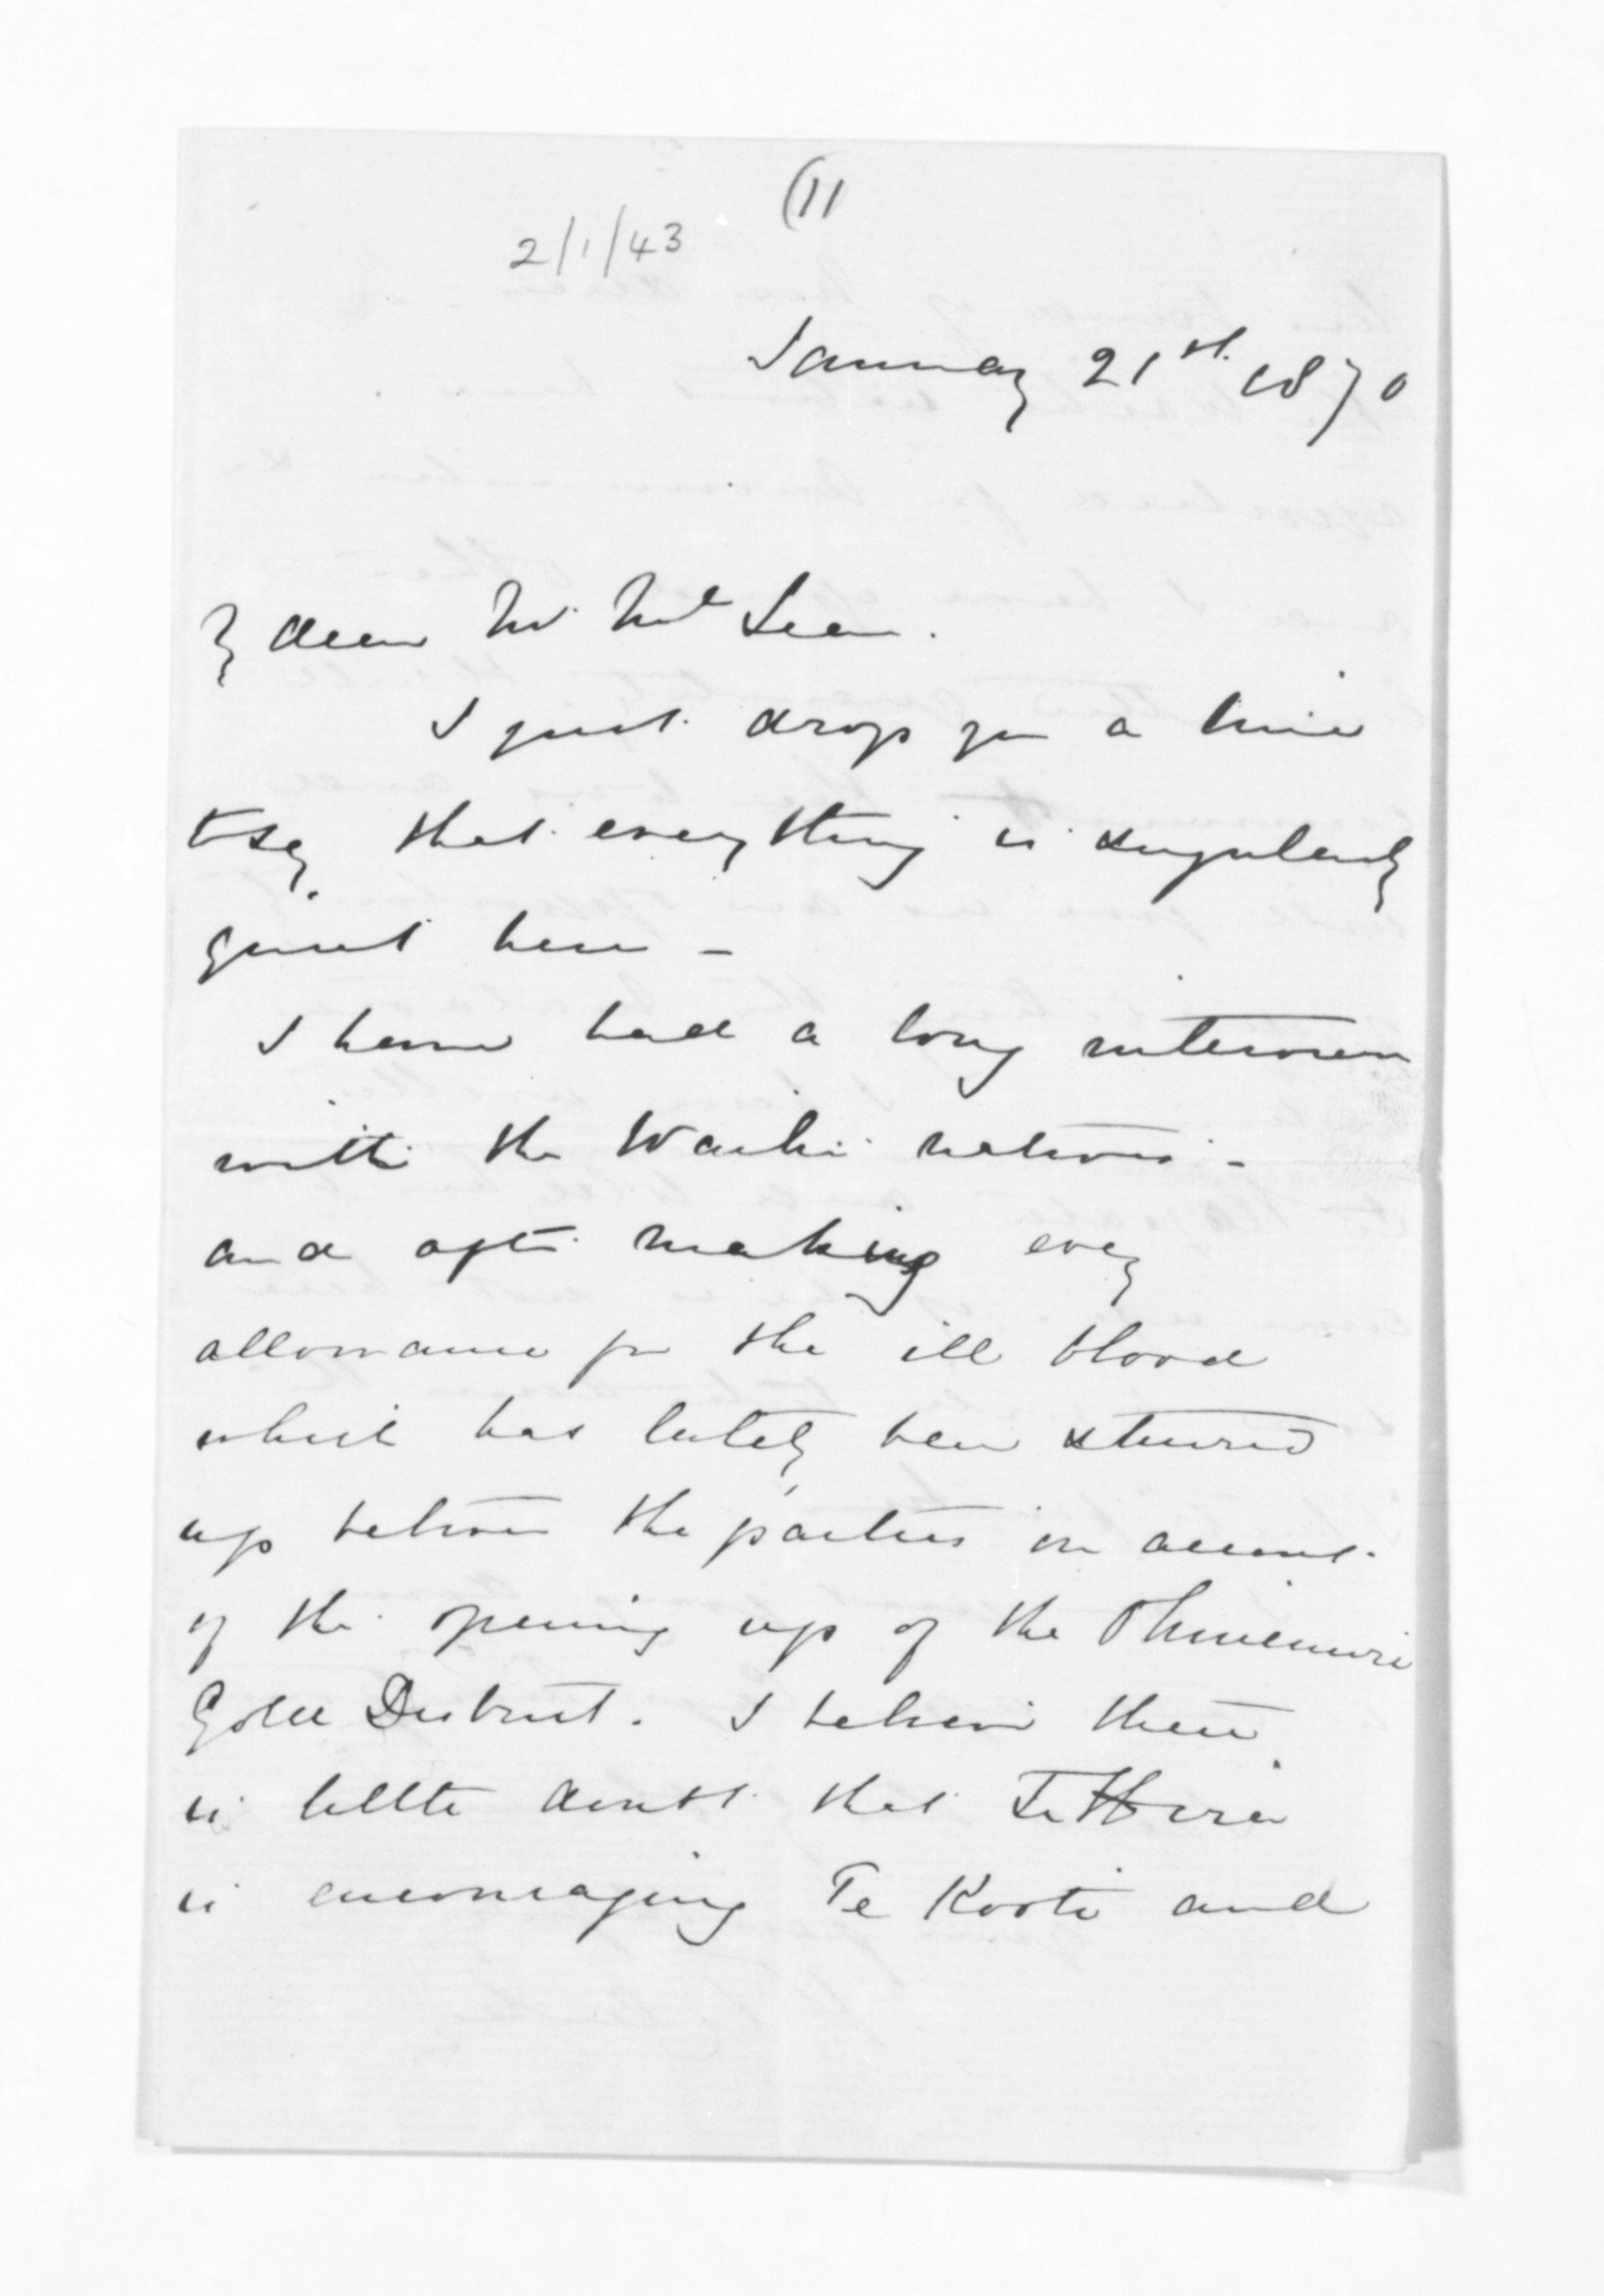 (11
2/1/43
January 21st. 1870
My dear Mr McLean.
I just drop you a line
to say that everything is singularly
quiet here -
I have had a long interview
with the Waihi natives -
and after making every
allowance for the ill blood
which has lately been stirred
up between the parties on account
of the opening up of the Ohinemuri
Gold District. I believe there
is little doubt that Te Hira
is encouraging Te Kooti and